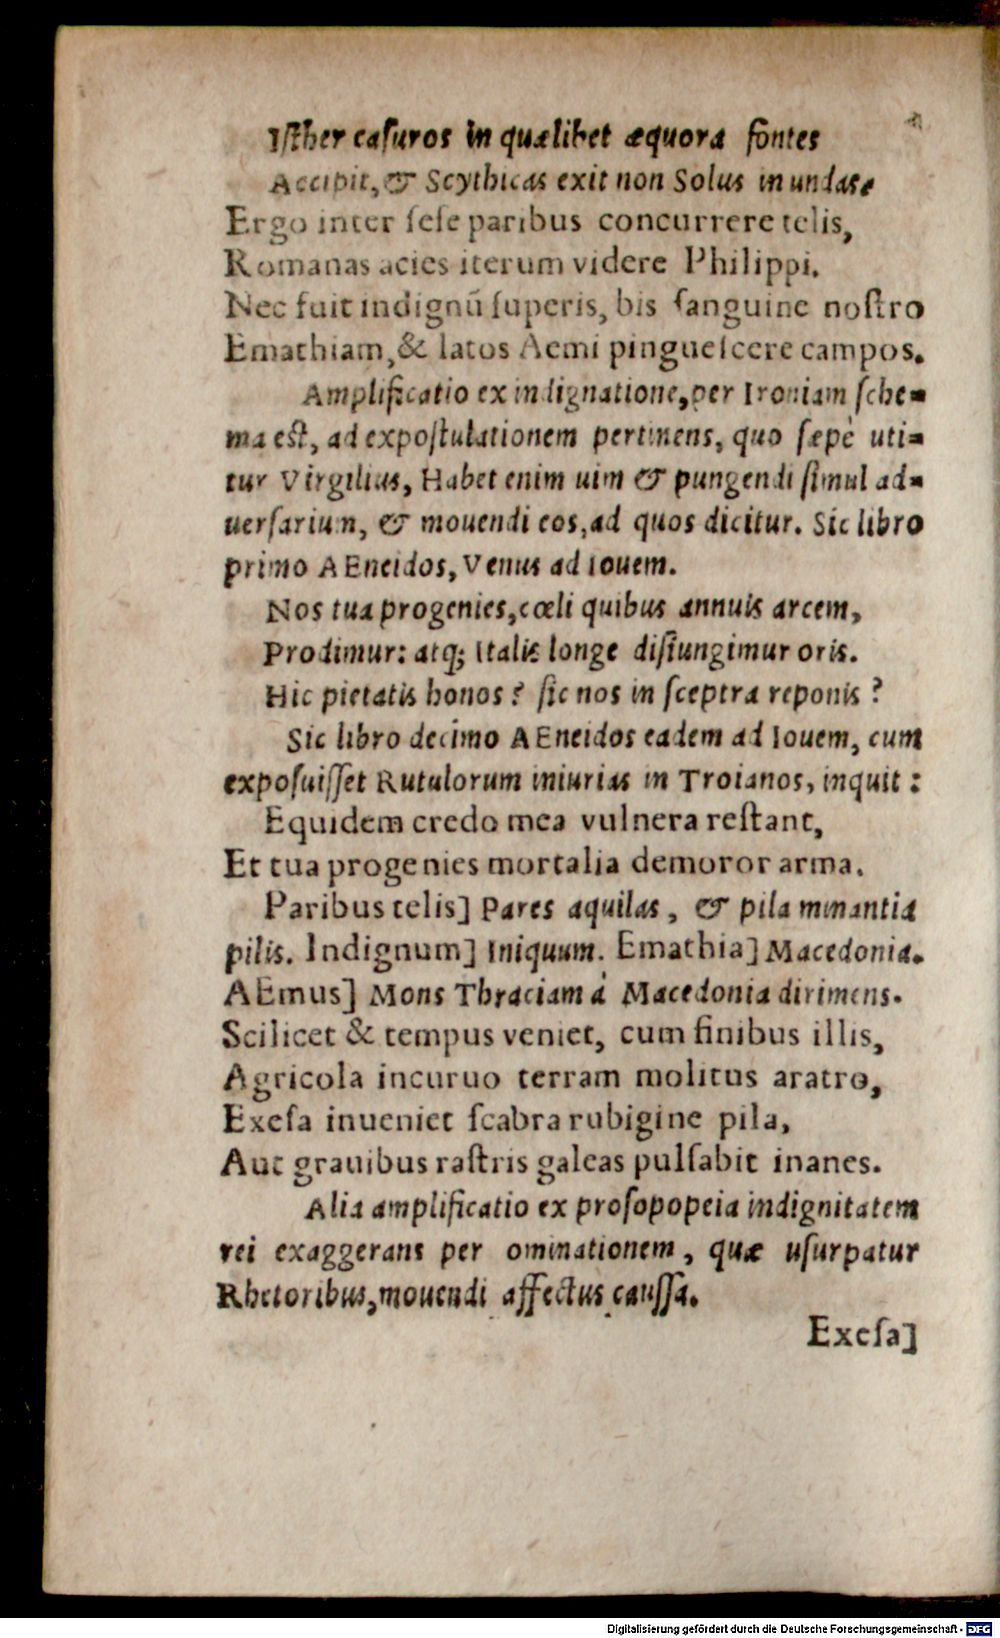 Iſther caſuros in quælibet æquora fontes
Accipit, & Scythicas exit non Solus in undas.
Ergo inter ſeſe paribus concurrere telis,
Romanas acies iterum videre Philippi.
Nec fuit indignū ſuperis, bis ſanguine noſtro
Emathiam, & latos Aemi pingueſcere campos.
Amplificatio ex indignatione, per Ironiam ſche-
ma eſt, ad expoſtulationem pertinens, quo ſæpè uti-
tur Virgilius, Habet enim uim & pungendi ſimul ad-
uerſarium, & mouendi eos, ad quos dicitur. Sic libro
primo AEneidos, Venus ad Iouem.
Nos tua progenies, cœli quibus annuis arcem,
Prodimur: atq; Italis longe diſiungimur oris.
Hic pietatis honos? ſic nos in ſceptra reponis?
Sic libro decimo AEneidos eadem ad Iouem, cum
expoſuiſſet Rutulorum iniurias in Troianos, inquit:
Equidem credo mea vulnera reſtant,
Et tua progenies mortalia demoror arma.
Paribus telis] Pares aquilas, & pila minantia
pilis. Indignum] Iniquum. Emathia] Macedonia.
AEmus] Mons Thraciam à Macedonia dirimens.
Scilicet & tempus veniet, cum finibus illis,
Agricola incuruo terram molitus aratro,
Exeſa inueniet ſcabra rubigine pila,
Aut grauibus raſtris galeas pulſabit inanes.
Alia amplificatio ex proſopopeia indignitatem
rei exaggerans per ominationem, quæ uſurpatur
Rhetoribus, mouendi affectus cauſſa.
Exeſa]
Digitalisierung gefördert durch die Deutsche Forschungsgemeinschaft - DFG